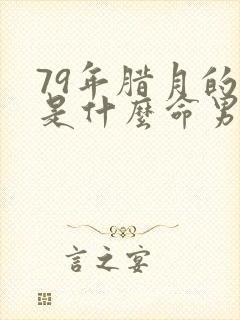 79年腊月的
是什麼命男
言之宴